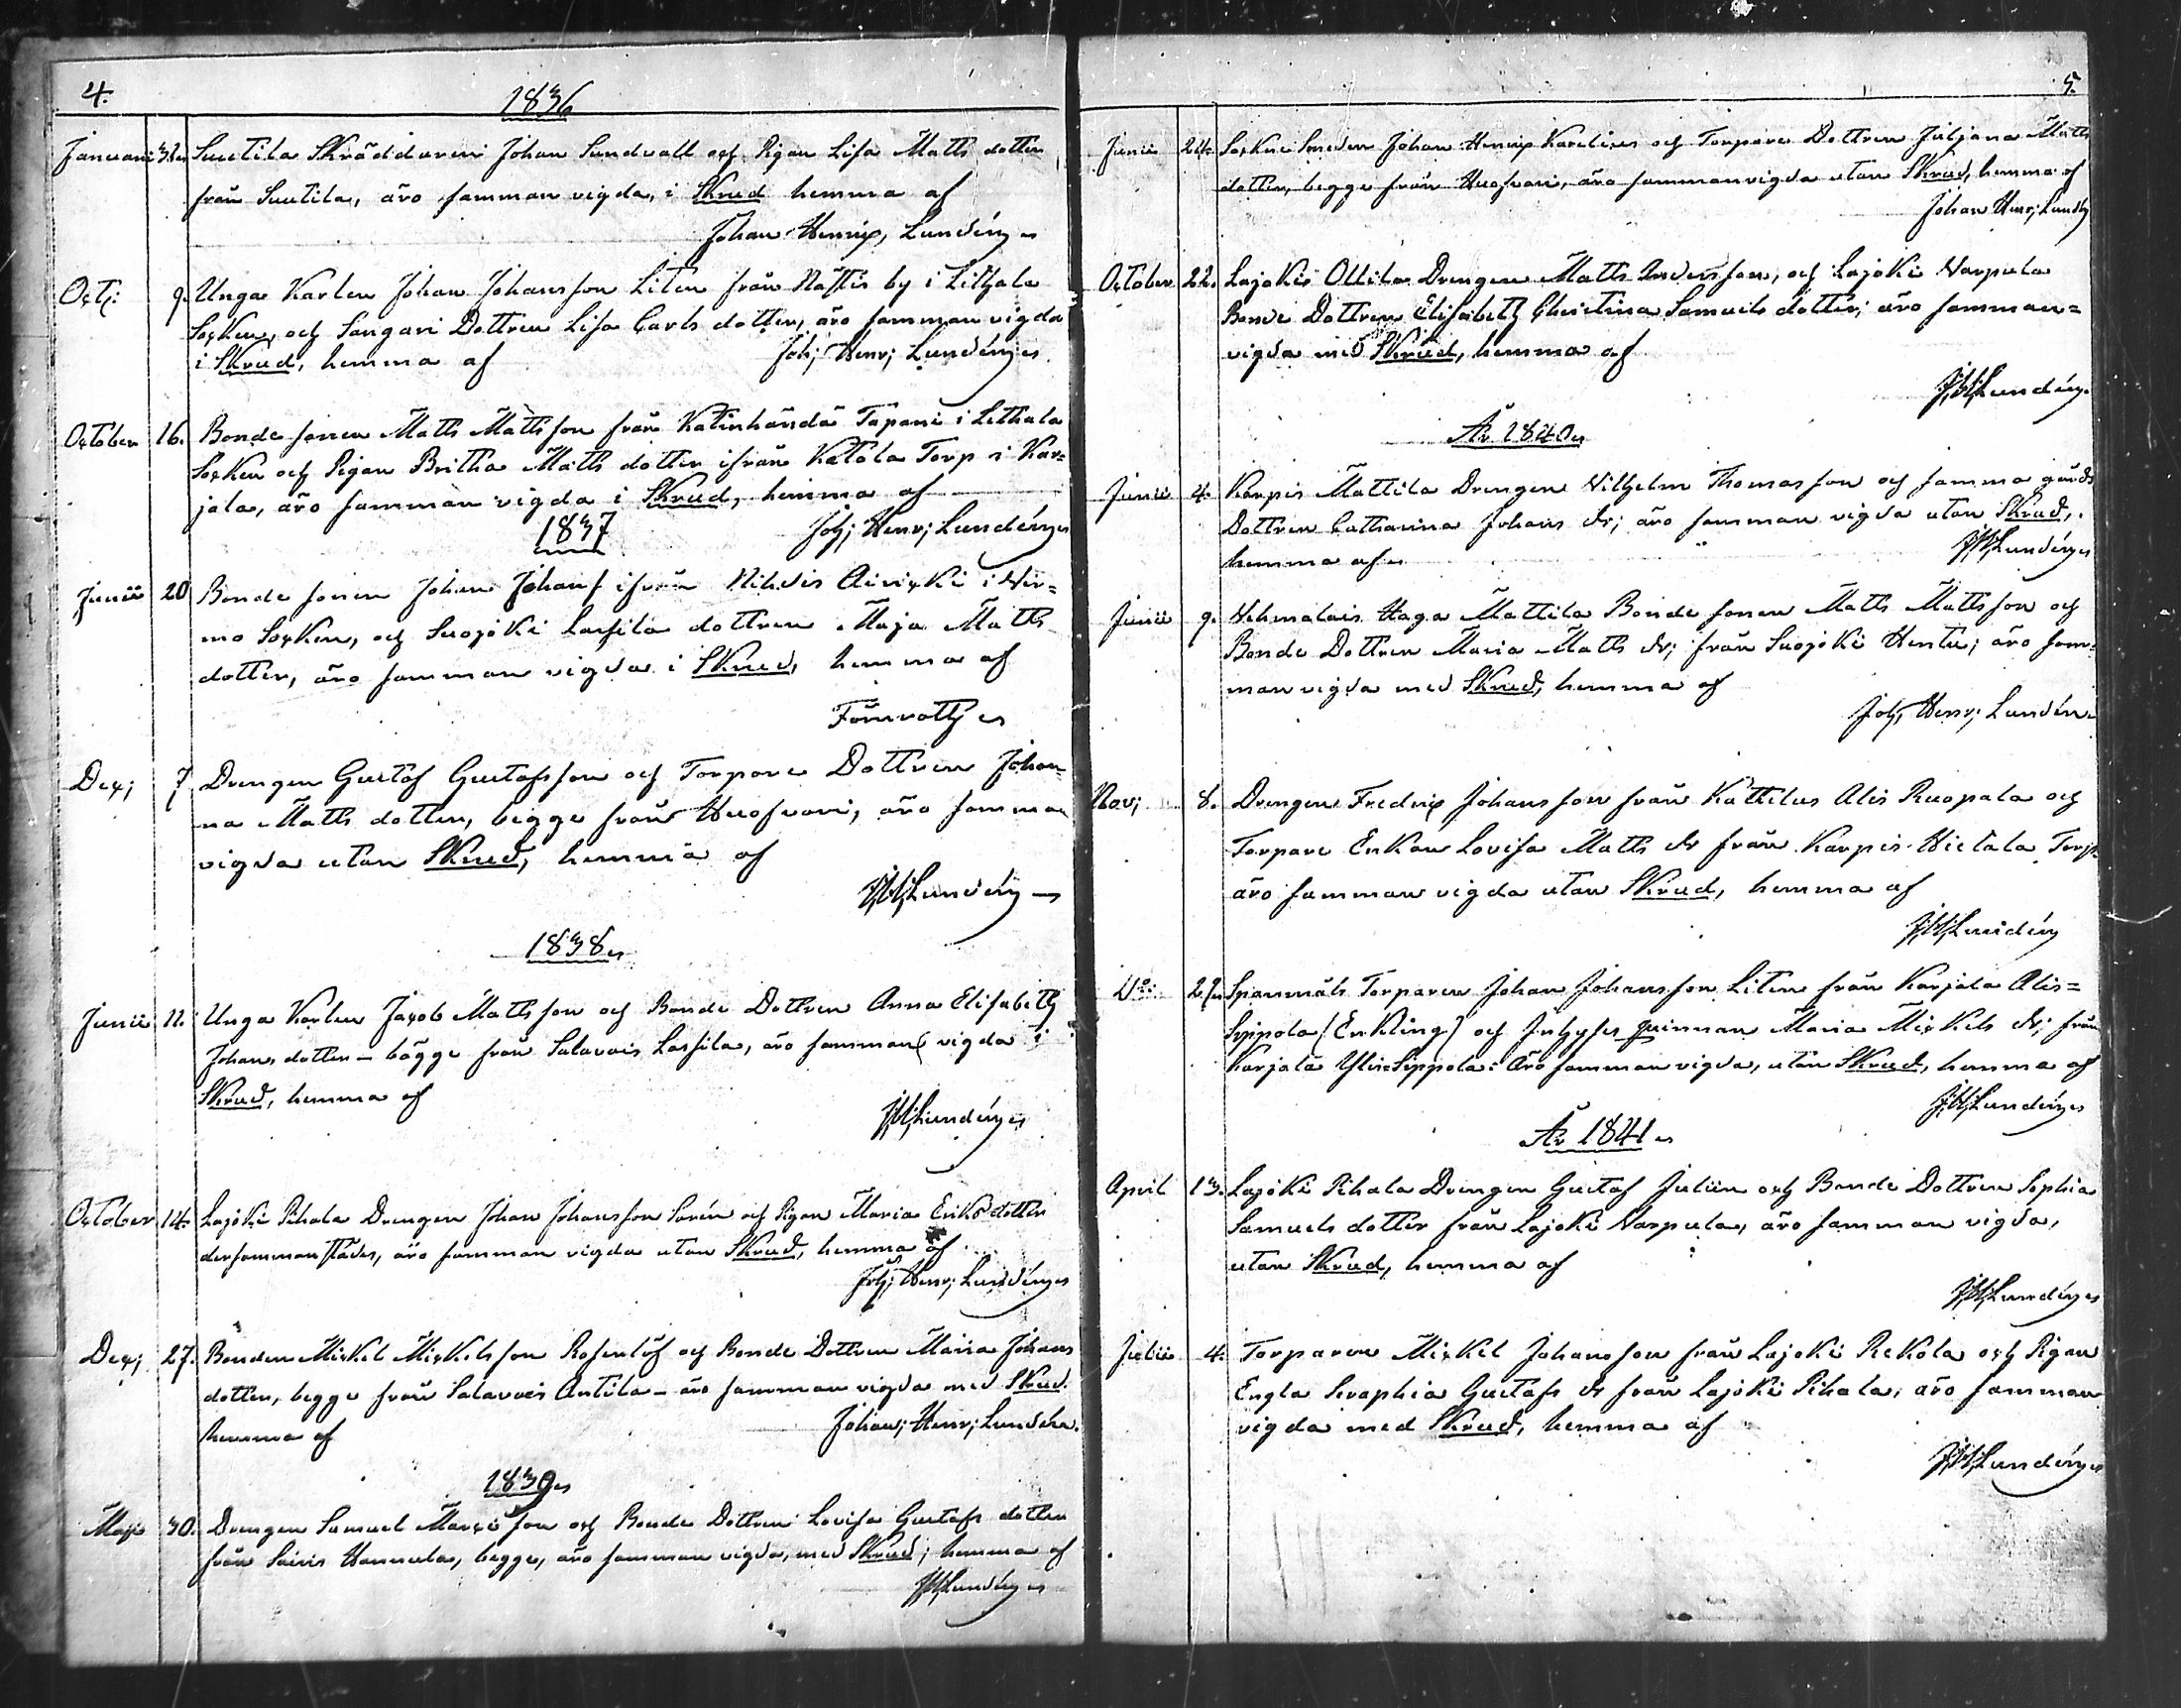 4.
1836
Januari 31. Suutila Skräddaren Johan Sundvall och Pigan Lisa Matts dotter
från Suutila, äro samman vigda, i Skrud hemma af
Johan Henric, Lundén
Oct: 9. Unga Karlen Johan Johansson Liten från Nästis by i Lethala
Socken, och Sangari Dottren Lisa Carls dotter, äro samman vigda
i Skrud, hemma af Joh; Henr; Lundén
October 16. Bonde sonen Matts Mattsson från Katinhändä Tapani i Lethala
Socken och Pigan Britha Matts dotter ifrån Katola Torp i Kar=
jala, äro samman vigda i Skrud, hemma af
1837 Joh; Henr; Lundén
Junii 20 Bonde sonen Johan Johans s ifrån Nihdis i Vir=
mo Socken, och Suojoki Lassila dottren Maja Matts
dotter, äro samman vigda i Skrud, hemma af
Törnroth
Dec; 7 Drengen Gustaf Gustafsson och Torpare Dottren Johan
na Matts dotter, begge från Huosvari, äro samman
vigda utan Skrud, hemma af
JHLundén
1838
Junii 11. Unga Karlen Jacob Mattsson och Bonde Dottren Anna Elisabeth
Johans dotter – bägge från Salavais Lassila, äro samman vigda i
Skrud, hemma af
JHLundén
October 14. Lajoki Pihala Drengen Johan Johansson Sorén och Pigan Maria Eriks dotter
dersammanstädes, äro samman vigda utan Skrud, hemma af
Joh; Henr; Lundén
Dec; 27. Bonden Mickel Mickelsson Rosenlöf och Bonde Dottren Maria Johans
dotter, begge från Salavais Antila – äro samman vigda med Skrud.
hemma af Johan; Henr; Lundén
1839
Maji 30. Drengen Samuel Marcisson och Bonde Dottren Lovisa Gustafs dotter
från Hannula, begge, äro samman vigda, med Skrud; hemma af
JHLundén
5.
Junii 24. Socken Smeden Johan Henric Karelius och Torpare Dottren Juljana Matts
dotter, begge från Huosvari, äro sammanvigda utan Skrud, hemma af
Johan Henr; Lundén
October 22. Lajokis Ollila Drengen Matts Andersson, och Lajoki Varpula
Bonde Dottren Elisabeth Christina Samuels dotter; äro samman=
vigda med Skrud, hemma af
JHLundén
År 1840
Junii 4. Karpis Mattila Drengen Vilhelm Thomasson och samma gårds
Dottren Catharina Johans dr; äro samman vigda utan Skrud,
hemma af JHLundén
Junii 9. Vehmalais Haga Mattila Bonde sonen Matts Mattsson och
Bonde Dottren Maria Matts dr; från Suojoki Hentu; äro sam=
man vigda med Skrud, hemma af
Joh, Henr; Lundén
Nov; 8. Drengen Fredric Johansson från Kattelus Alis Ruopala och
Torpare Enkan Lovisa Matts dr från Karpis Hietala Torp
äro samman vigda utan Skrud, hemma af
JHLundén
Do: 27. Spanmåls Torparen Johan Johansson Liten från Karjala Alis=
Sippola (Enkling) och Inhyses qvinnan Maria Mickels dr; från
Karjala Ylis=Sippola: Äro samman vigda, utan Skrud, hemma af
JHLundén
År 1841
April 13. Lajoki Pihala Drengen Gustaf Julin och Bonde Dottren Sophia
Samuels dotter från Lajoki Varpula, äro samman vigda,
utan Skrud, hemma af
JHLundén
Julii 4. Torparen Mickel Johansson från Lajoki Rekola och Pigan
Engla Seraphia Gustafs dr från Lajoki Pihala, äro samman
vigda med Skrud, hemma af
JHLundén